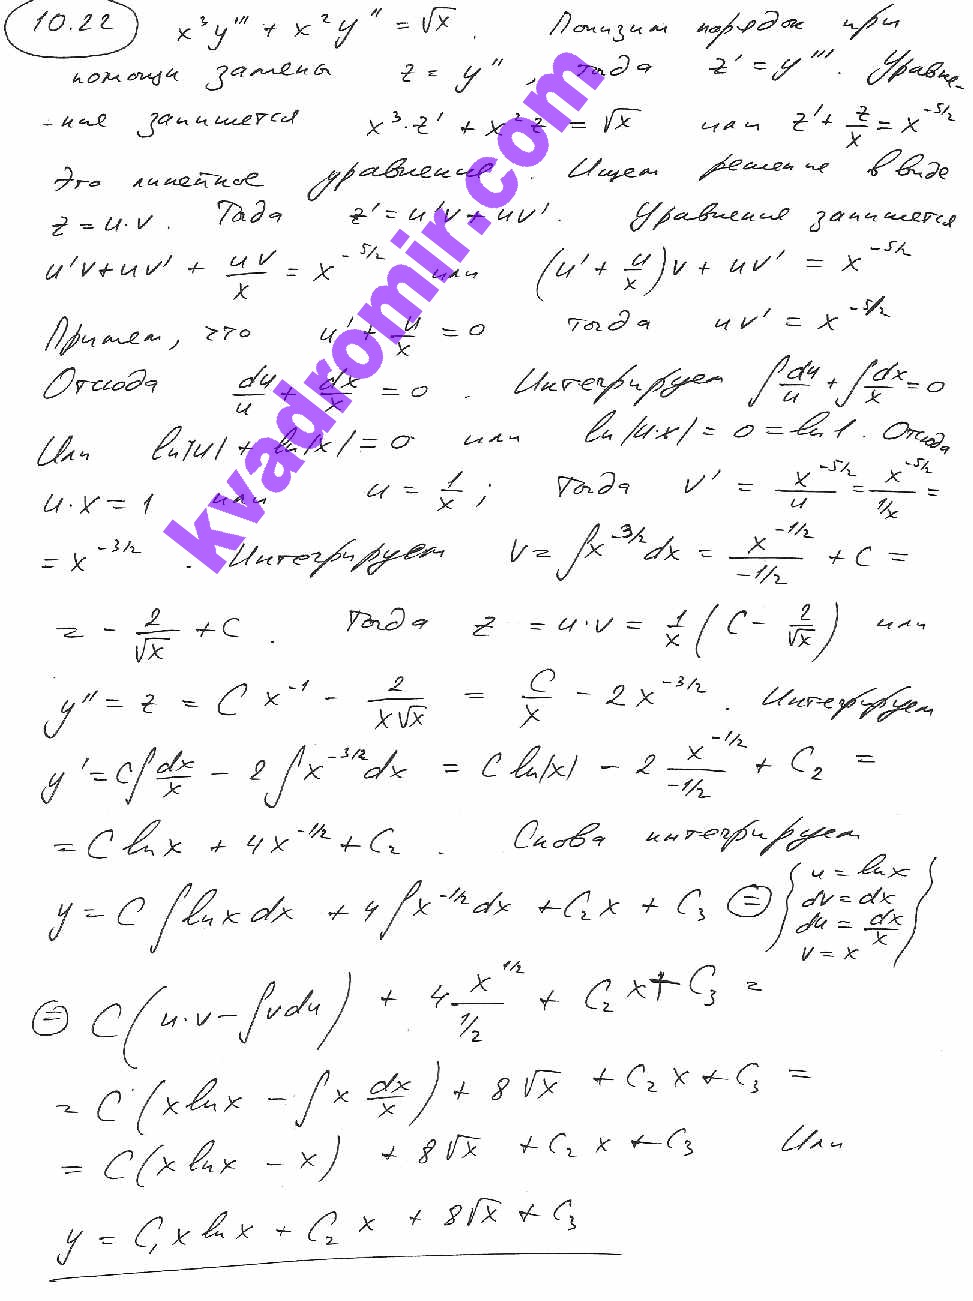 10.22 x³y''' + x²y'' = √x. Понизим порядок при
помощи замены z = y'', тогда z' = y'''. Уравне-
-ние запишется x³·z' + x²z = √x или z' + z/x = x^(-5/2)
Это линейное уравнение. Ищем решение в виде
z = u·v. Тогда z' = u'v + uv'. Уравнение запишется
u'v + uv' + uv/x = x^(-5/2) или (u' + u/x)v + uv' = x^(-5/2)
Примем, что u' + u/x = 0 тогда uv' = x^(-5/2)
Отсюда du/u + dx/x = 0. Интегрируем ∫du/u + ∫dx/x = 0
Или ln|u| + ln|x| = 0 или ln|u·x| = 0 = ln1. Отсюда
u·x = 1 или u = 1/x; тогда v' = x^(-5/2)/u = x^(-5/2)/(1/x) =
= x^(-3/2). Интегрируем v = ∫x^(-3/2)dx = x^(-1/2)/(-1/2) + C =
= - 2/√x + C. Тогда z = u·v = 1/x (C - 2/√x) или
y'' = z = C x^(-1) - 2/(x√x) = C/x - 2x^(-3/2). Интегрируем
y' = C∫dx/x - 2∫x^(-3/2)dx = C ln|x| - 2 x^(-1/2)/(-1/2) + C₂ =
= C lnx + 4x^(-1/2) + C₂. Снова интегрируем
y = C∫lnx dx + 4∫x^(-1/2)dx + C₂x + C₃ ⊜ {u = lnx
dv = dx
du = dx/x
v = x}
⊜ C(u·v - ∫vdu) + 4 x^(1/2)/(1/2) + C₂x + C₃ =
= C(x lnx - ∫x dx/x) + 8√x + C₂x + C₃ =
= C(x lnx - x) + 8√x + C₂x + C₃ Или
y = C₁x lnx + C₂x + 8√x + C₃
kvadromir.com